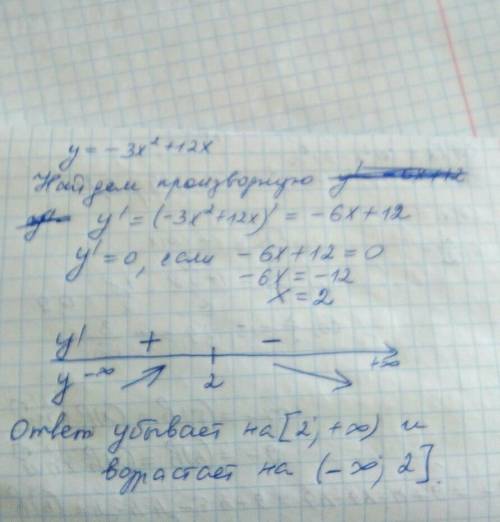 y = -3x² + 12x
Найдем производную
y' = (-3x² + 12x)' = -6x + 12
y' = 0, если -6x + 12 = 0
-6x = -12
x = 2
y' + - +∞
y -∞ 2
Ответ убывает на [2; +∞) и
возрастает на (-∞; 2].